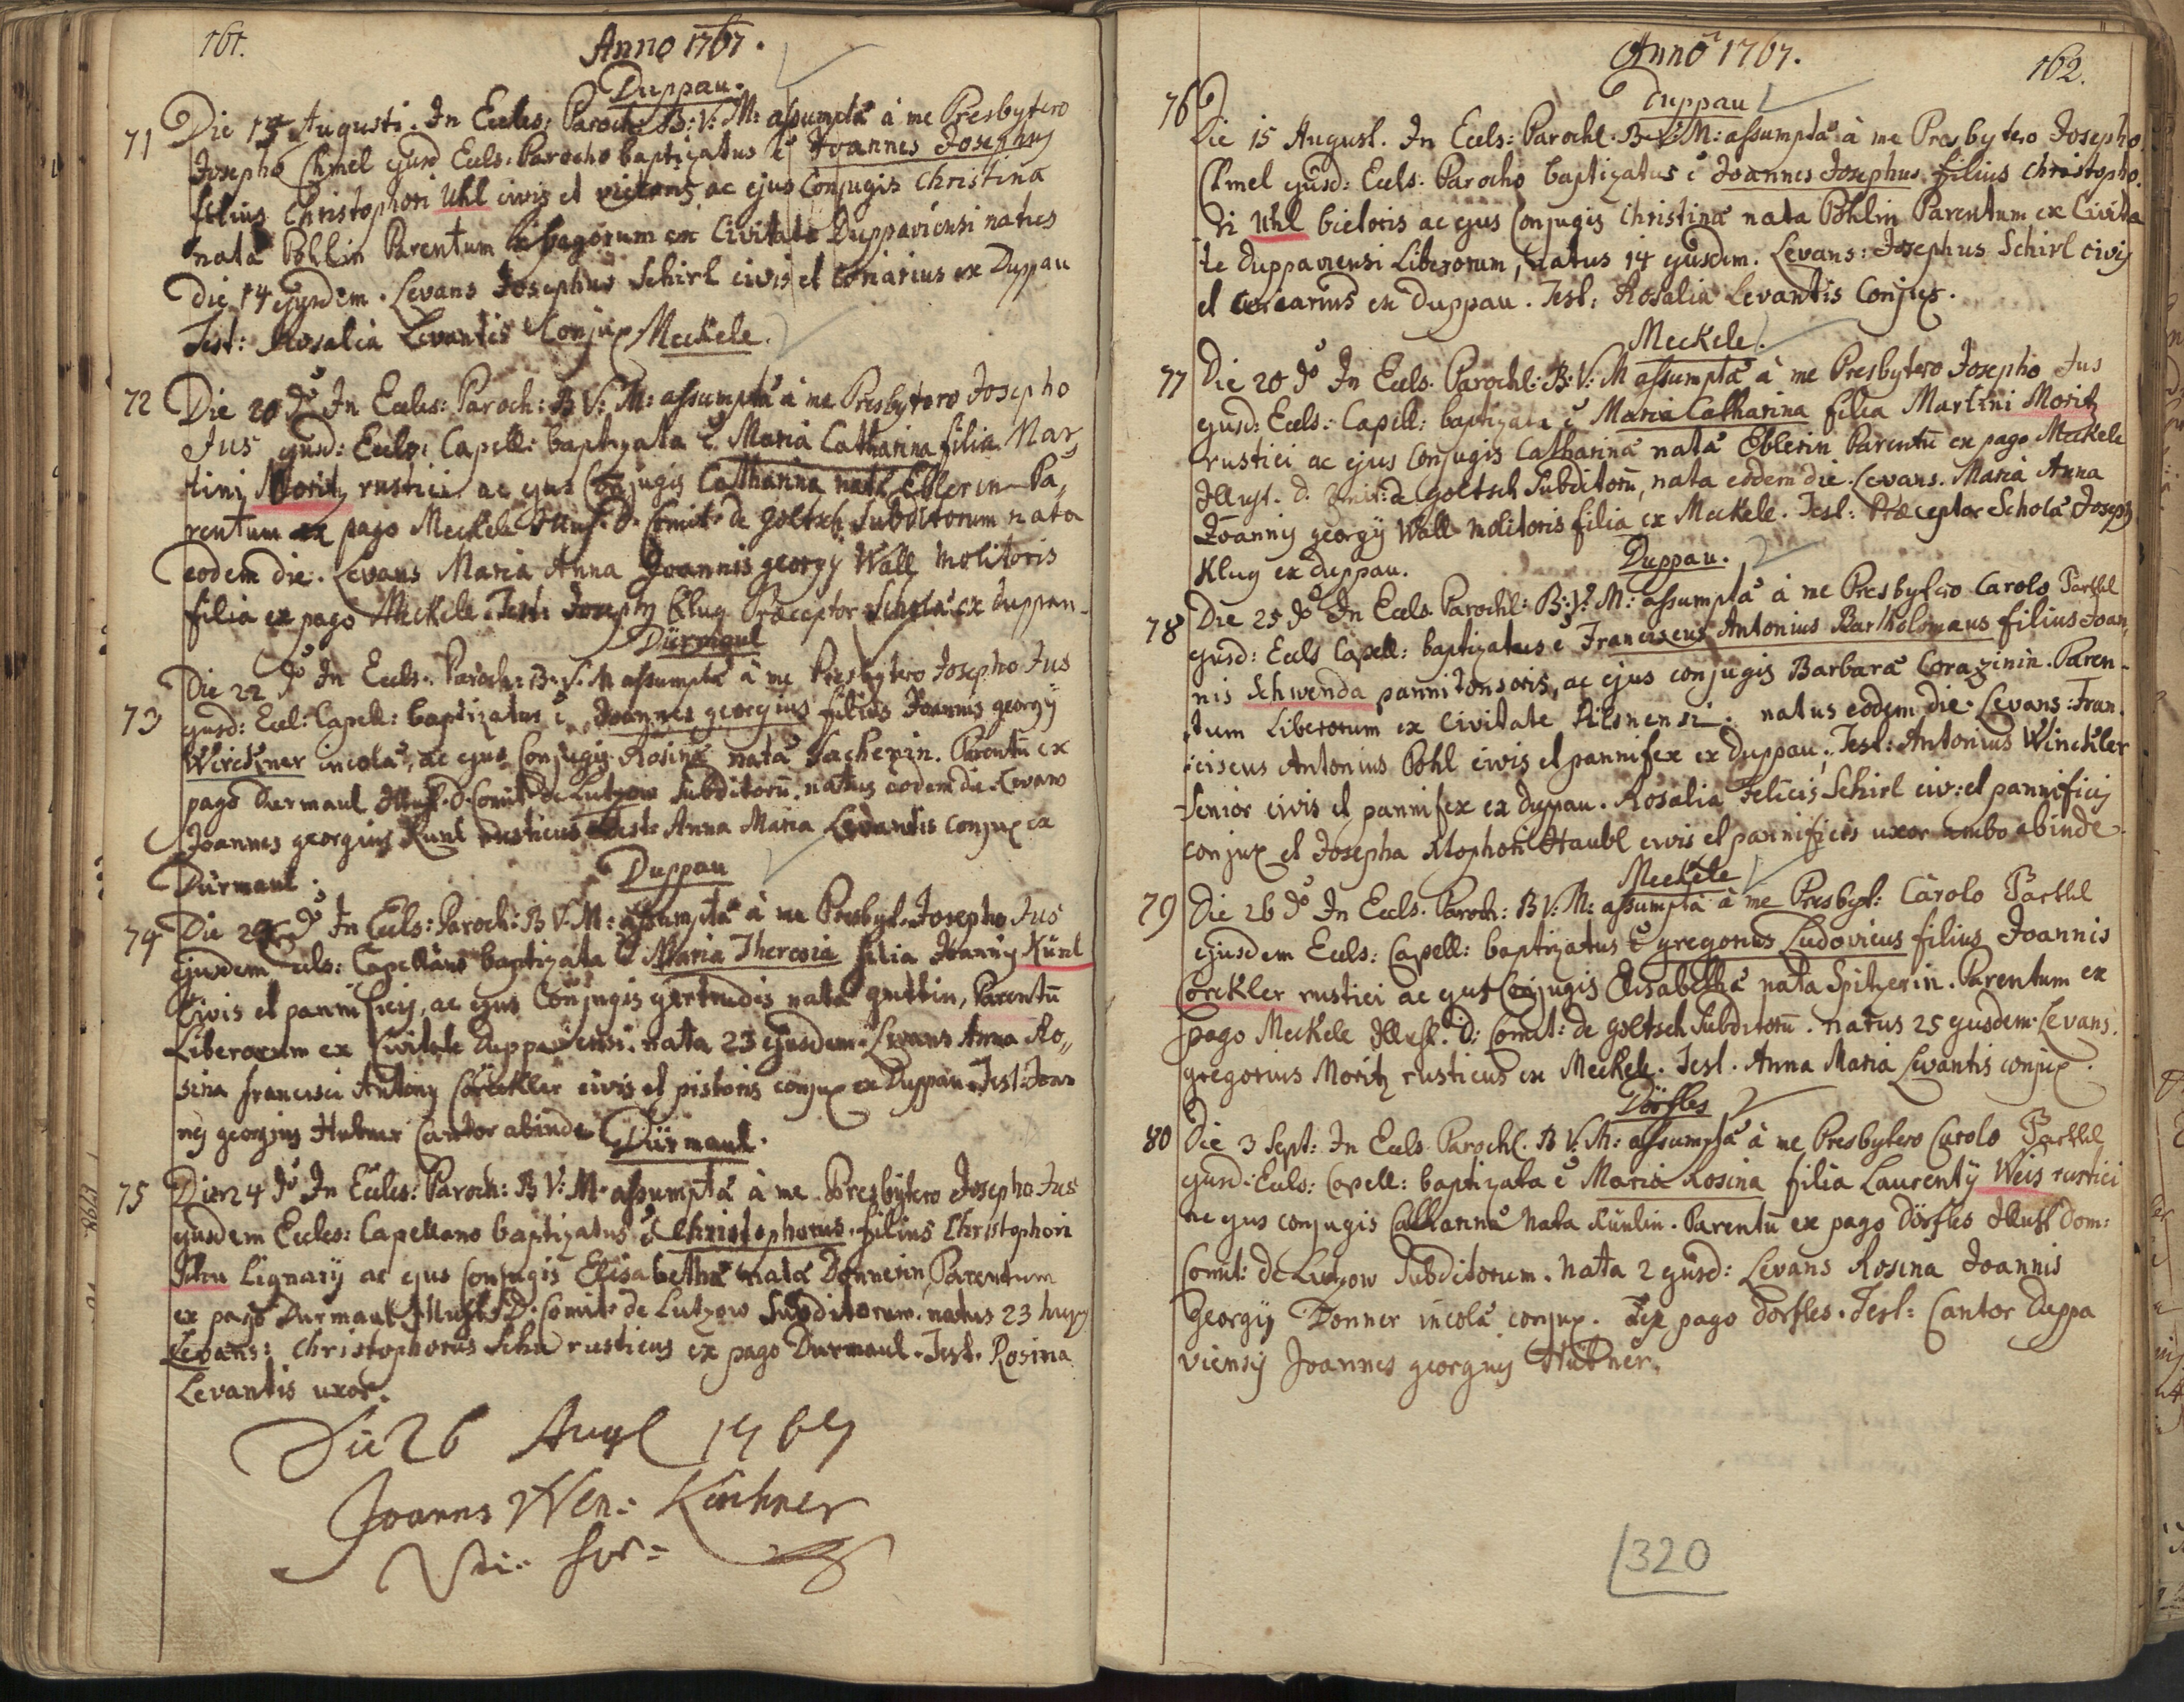 161.
Anno 1767.
Duppau.
71 Die 15 Augusti. In Eccles: Paroch: B: V: M: assumptâ à me Presbytero
Josepho Chmel ejusd Eccls. Parocho baptizatus ē Joannes Josephus
filius Christophori Uhl civis et vietoris ac ejus Conjugis Christina
nata Pohlin Parentum ex Civitate Duppaviensi natus
die 14 ejusdem. Levans Josephus Schirl civis et coriarius ex Duppau
Test: Rosalia Levantis Conjux
Meckele.
72 Die 20 do In Eccles: Paroch: B V: M: assumptâ à me Presbytero Josepho
Jus ejusd: Eccls: Capell: baptizata ē Maria Catharina filia Mar
tini Moritz rustici ac ejus Conjugis Catharina nata Eblerin Pa,,
rentum ex pago Meckele D. Comit: de Goltsch Subditorum nata
eodem die. Levans Maria Anna Joannis georgij Wall Molitoris
filia ex pago Meckele. Test: Joseph Klug Præceptor Schola ex Duppau.
Dürmaul
73 Die 22 do In Eccls: Paroch: B. V. M assumptâ à me Presbytero Josepho Jus
ejusd: Eccl: Capell: baptizatus ē Joannes georgius filius Joannis georgij
Wirckner incolâ, ac ejus Conjugis Rosina nata Parentū ex
pago Durmaul Illust. D. Comit de Lutzow Subditorū. natus eodem die. Levans
Joannes georgius Kunl rusticus Test: Anna Maria Levantis conjux ex
Dürmaul.
Duppau
74 Die do In Eccls: Paroch: B V: M: assumptâ à me Presbyt. Josepho Jus
ejusdem Eccls: Capellano baptizata ē Maria Theresia filia Joannis Künl
Civis et pannificis, ac ejus Conjugis gertrudis nata guttin, Parentū
Liberorum ex Civitate Duppaviensi. nata 23 ejusdem. Levans Anna Ro,,
sina francisci Antonij Corckler civis et pistoris conjux ex Duppau. Test: Joan
nes georgius Hubner Cantor abinde
Dürmaul.
75 Die 24 do In Eccles: Paroch: B V: M. assumptâ à me Presbytero Josepho Jus
ejusdem Eccles: Capellano baptizatus ē Christophorus. filius Christophori
Schu Lignarij ac ejus Conjugis Elisabetha nata Donnerin Parentum
ex pago Durmaul Illust. D. Comit: de Lutzow Subditorum. natus 23 hujus
Levans: Christophorus Schu rusticus ex pago Durmaul. Test. Rosina
Levantis uxor.
Die 26 Augl 1767
Joanns Wen: Kirchner

Anno 1767.
162.
Duppau
76 Die 15 August. In Eccls: Parochl. B V: M: assumptâ à me Presbytero Josepho
Chmel ejusd: Eccls. Parocho baptizatus ē Joannes Josephus filius Christopho
ri Uhl vietoris ac ejus Conjugis Christina nata Pohlin Parentum ex Civita
te Duppaviensi Liberorum, natus 14 ejusdem. Levans: Josephus Schirl civis
et coriarius ex Duppau. Test: Rosalia Levantis Conjux.
Meckele.
77 Die 20 do In Eccls. Parochl: B: V: M assumptâ à me Presbytero Josepho Jus
ejusd: Eccls: Capell: baptizata ē Maria Catharina filia Martini Moritz
rustici ac ejus Conjugis Catharina nata Eblerin Parentū ex pago Meckele
Illust. D. Comit: de Goltsch Subditorū, nata eodem die. Levans. Maria Anna
Joannis georgij Wall Molitoris filia ex Meckele. Test: Præceptor Schola Joseph
Klug ex Duppau.
Duppau.
78 Die 25 do In Eccls. Parochl: B: V: M: assumptâ à me Presbytero Carolo Parthl
ejusd: Eccls Capell: baptizatus ē Franciscus Antonius Bartholomaus filius Joan,
nis Schwenda pannitonsoris, ac ejus conjugis Barbara Corazinin. Paren-
tum Liberorum ex Civitate Pilsnensi. natus eodem die. Levans: Fran,
ciscus Antonius Pohl civis et pannifex ex Duppau; Test: Antonius Winckler
Senior civis et pannifex ex Duppau. Rosalia Felicis Schirl civ: et pannificis
conjux et Josepha Xtophori Haubl civis et pannificis uxor ambo abinde.
Meckele
79 Die 26 do In Eccls. Paroch: B V: M: assumptâ à me Presbyt: Carolo Parthl
ejusdem Eccls: Capell: baptizatus ē gregorius Ludovicus filius Joannis
Corckler rustici ac ejus Conjugis Elisabetha nata Spitzerin. Parentum ex
pago Meckele Illust. D: Comit: de Goltsch Subditorū. natus 25 ejusdem. Levans.
gregorius Moritz rusticus ex Meckele. Test. Anna Maria Levantis conjux.
Dörfles
80 Die 3 Sept: In Eccls. Parochl. B V: M: assumptâ à me Presbytero Carolo Parthl
ejusd: Eccls: Capell: baptizata ē Maria Rosina filia Laurentij Weis rustici
ac ejus conjugis Catharina Nata Künlin. Parentū ex pago Dörfles Illust Dom:
Comit: de Lutzow Subditorum. Nata 2 ejusd: Levans Rosina Joannis
Georgij Donner incolâ conjux. ex pago Dorfles. Test: Cantor Duppa
viensis Joannes georgius Hübner.
320